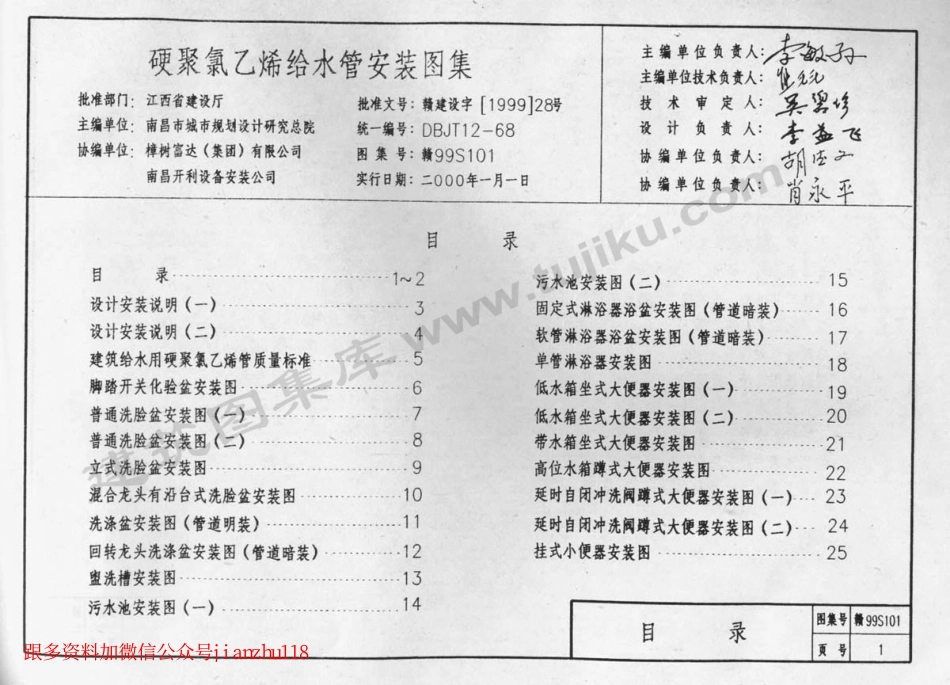 硬聚氯乙烯给水管安装图集
批准部门：江西省建设厅
主编单位：南昌市城市规划设计研究总院
协编单位：樟树富达（集团）有限公司
南昌开利设备安装公司
批准文号：赣建设字［1999］28号
统一编号：DBJT12-68
图集号：赣99S101
实行日期：二000年一月一日
主编单位负责人：李敏孙
主编单位技术负责人：
技术审定人：吴翠珍
设计负责人：李益飞
协编单位负责人：胡志文
协编单位负责人：肖永平
目 录
目 录 1~2
设计安装说明（一） 3
设计安装说明（二） 4
建筑给水用硬聚氯乙烯管质量标准 5
脚踏开关化验盆安装图 6
普通洗脸盆安装图（一） 7
普通洗脸盆安装图（二） 8
立式洗脸盆安装图 9
混合龙头有沿台式洗脸盆安装图 10
洗涤盆安装图（管道明装） 11
回转龙头洗涤盆安装图（管道暗装） 12
盥洗槽安装图 13
污水池安装图（一） 14
污水池安装图（二） 15
固定式淋浴器浴盆安装图（管道暗装） 16
软管淋浴器浴盆安装图（管道暗装） 17
单管淋浴器安装图 18
低水箱坐式大便器安装图（一） 19
低水箱坐式大便器安装图（二） 20
带水箱坐式大便器安装图 21
高位水箱蹲式大便器安装图 22
延时自闭冲洗阀蹲式大便器安装图（一） 23
延时自闭冲洗阀蹲式大便器安装图（二） 24
挂式小便器安装图 25
建筑图集库 www.tujiku.com
目 录
图集号 赣99S101
页号 1
跟多资料加微信公众号jianzhu118